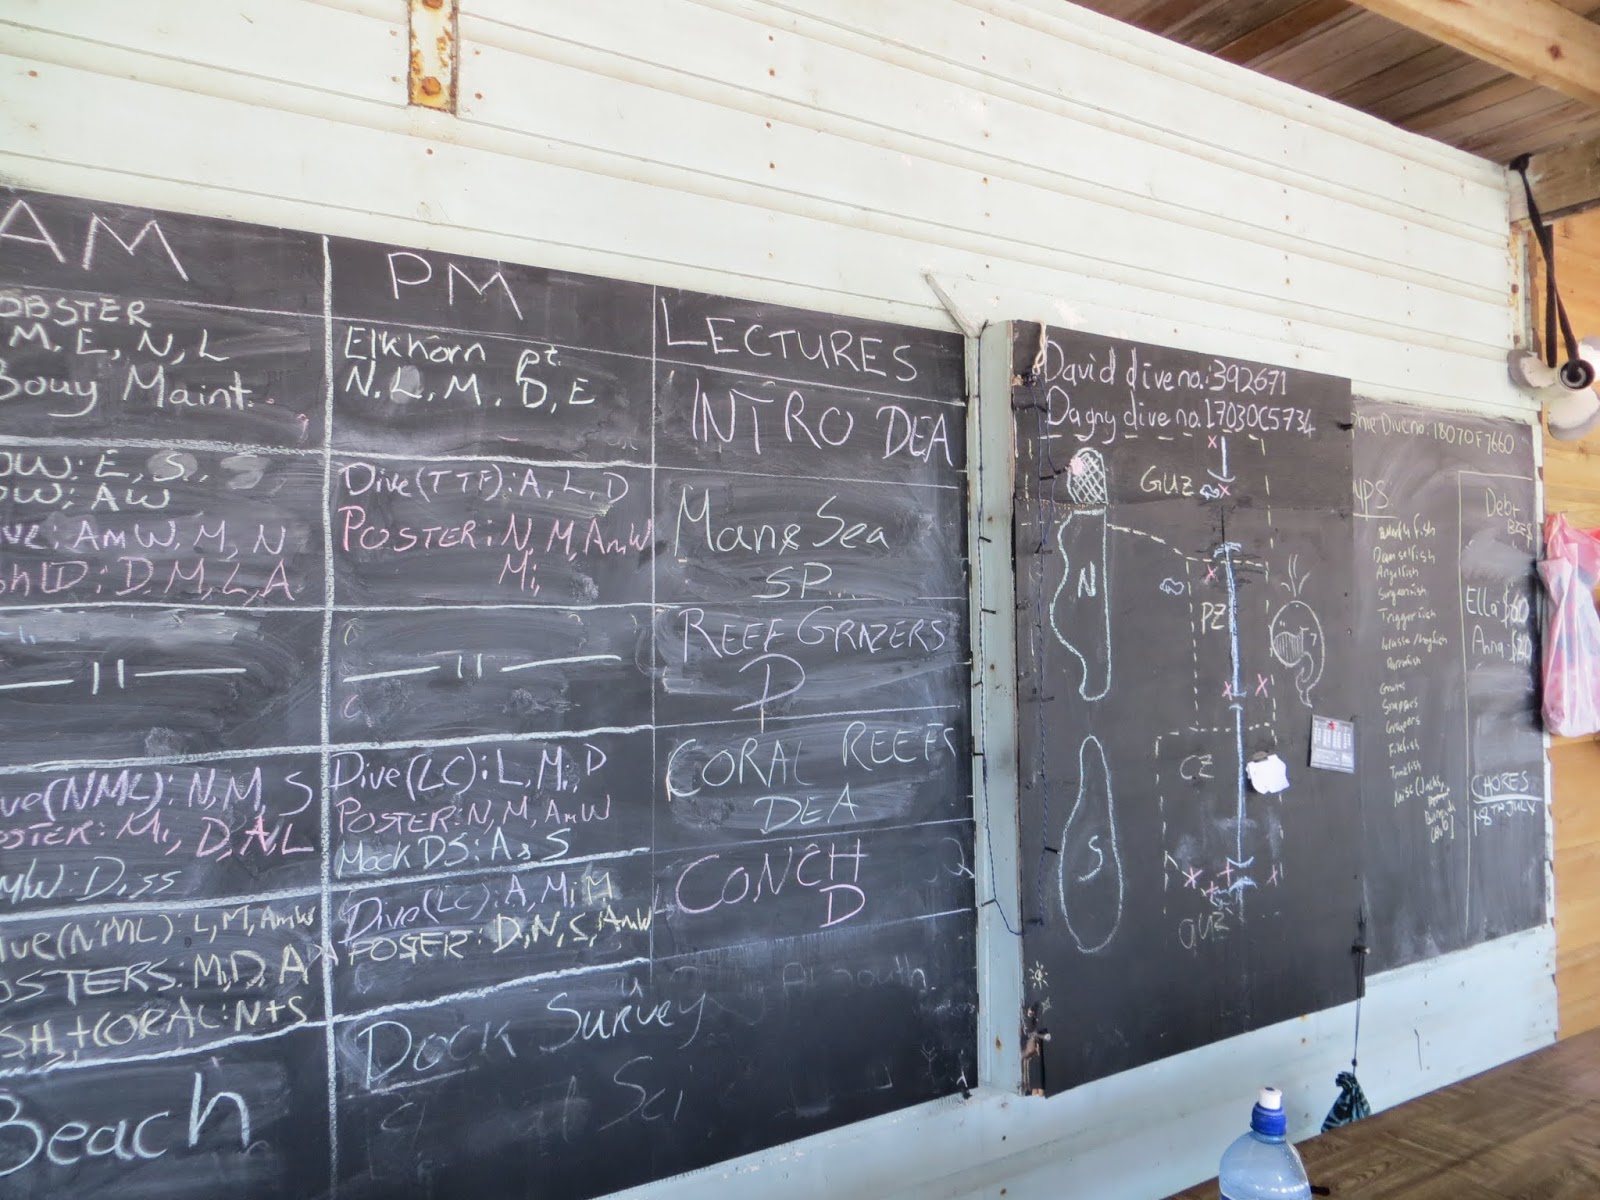 AM
OBSTER
M, E, N, L
Bouy Maint.
OW: E, S,
OW; AW
AmW, M, N
hID: D, M, L, A
ve(NML): N, M, S
OSTER: Mi, D, A, L
mW: D, SS
ive(NML): L, M, AmW
OSTERS: M, D, A
SH + CORAL: N+S
Beach
PM
Elkhorn pt.
N, L, M, D, E
Dive(TTF): A, L, D
POSTER: N, M, AmW
Mi,
Dive(LC): L, Mi, D
POSTER: N, M, AmW
Mock DS: A, S
Dive(LC): A, Mi, M
POSTER: D, N, S, AmW
Dock Survey
Sci
LECTURES
INTRO DEA
Man & Sea
SP..
REEF GRAZERS
D
CORAL REEFS
DEA
CONCH
D
David dive no.: 392671
Dagny dive no. 17030C5734
GUZ
N
PZ
CZ
S
GUZ
Dive no: 18070F7660
Damselfish
Angelfish
Surgeonfish
Triggerfish
Parrotfish
Grunts
Snappers
Groupers
Filefish
Misc (Jacks,
Debt
Ella $60
Anna $20
CHORES
18TH JULY